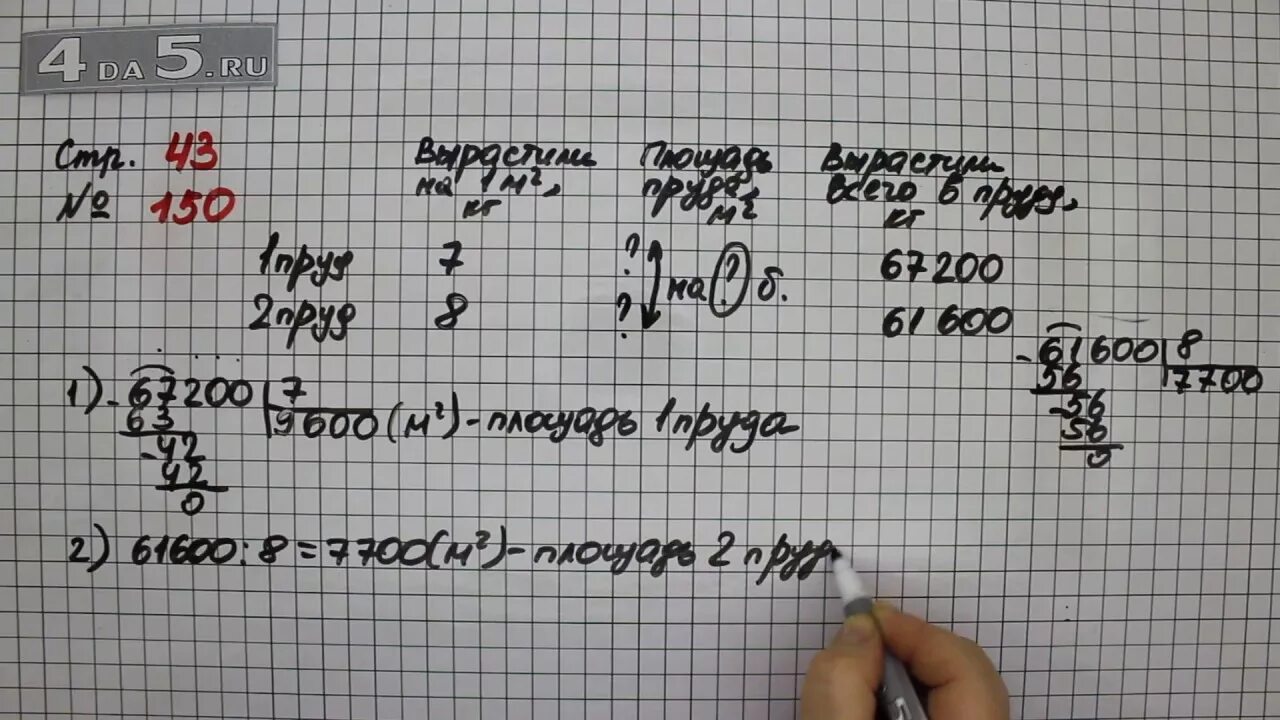 4DA5.RU
Стр. 43
№ 150
Вырастили на 1 м², кг
Площадь пруда, м²
Вырастили всего в пруду, кг
1 пруд 7 ? 67200
на ? б.
2 пруд 8 ? 61600
1) - 67200 | 7
63 9600 (м²) - площадь 1 пруда
- 42
42
0
- 61600 | 8
56 7700
- 56
56
0
2) 61600 : 8 = 7700 (м²) - площадь 2 пруд